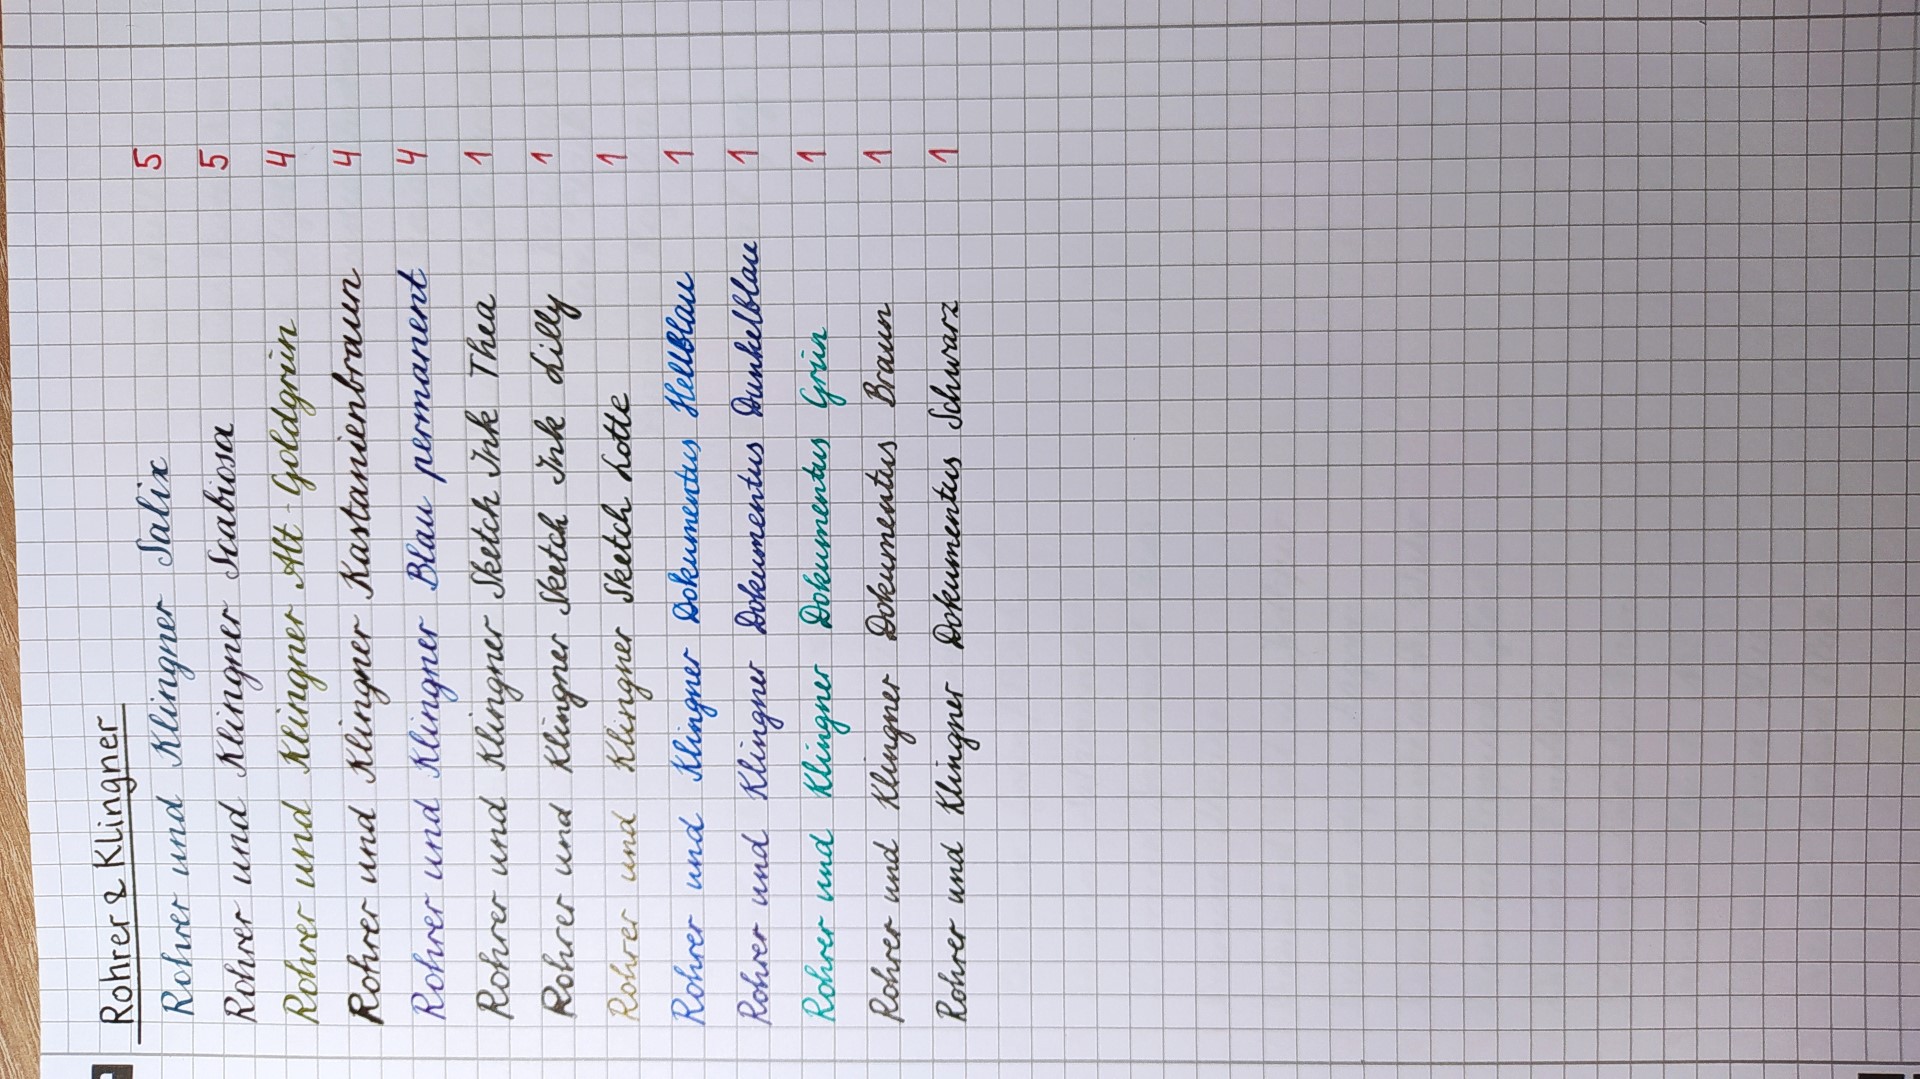 Rohrer & Klingner
Rohrer und Klingner Salix 5
Rohrer und Klingner Scabiosa 5
Rohrer und Klingner Alt-Goldgrün 4
Rohrer und Klingner Kastanienbraun 4
Rohrer und Klingner Blau permanent 4
Rohrer und Klingner Sketch Ink Thea 1
Rohrer und Klingner Sketch Ink Lilly 1
Rohrer und Klingner Sketch Lotte 1
Rohrer und Klingner Dokumentus Hellblau 1
Rohrer und Klingner Dokumentus Dunkelblau 1
Rohrer und Klingner Dokumentus Grün 1
Rohrer und Klingner Dokumentus Braun 1
Rohrer und Klingner Dokumentus Schwarz 1